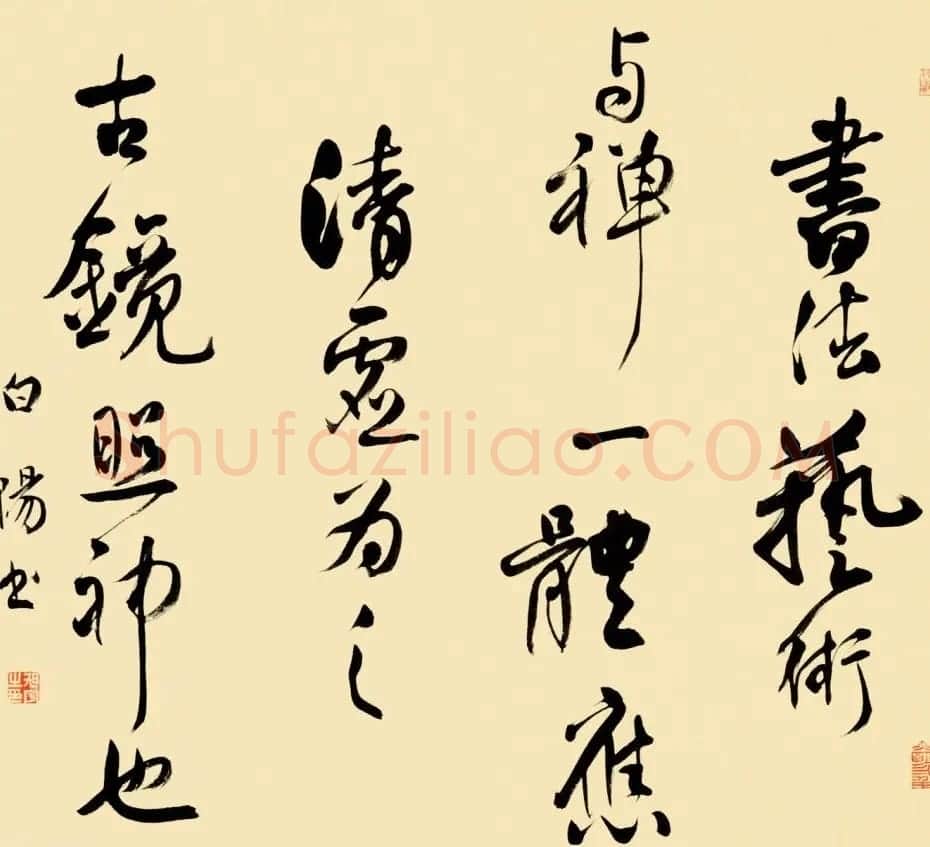 書法藝術
与禪一體應
清虛为之
古鏡照神也
白陽书
Shufaziliao.COM